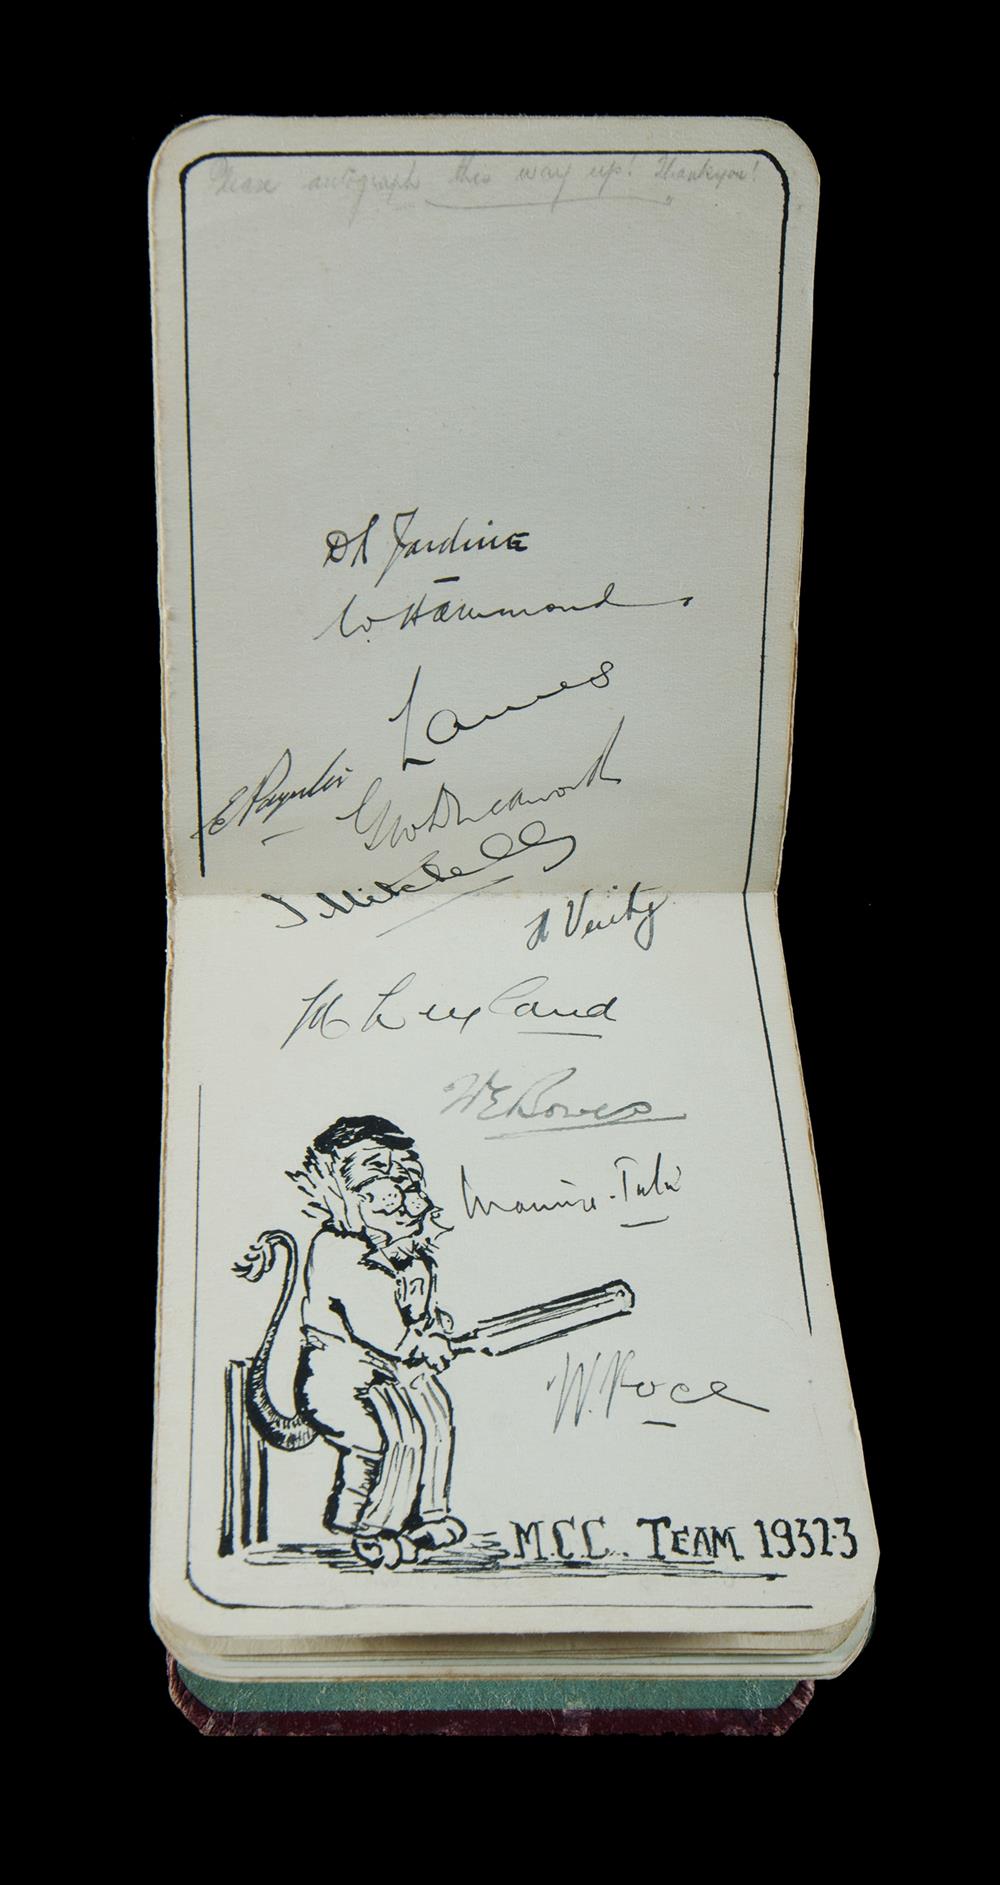 Please autograph this way up! Thankyou!
DR Jardine
W. Hammond.
L Ames
E Paynter
Geo Duckworth
T Mitchell
H Verity
M Leyland
WE Bowes
Maurice Tate
W. Voce
M.C.C. TEAM 1932-3